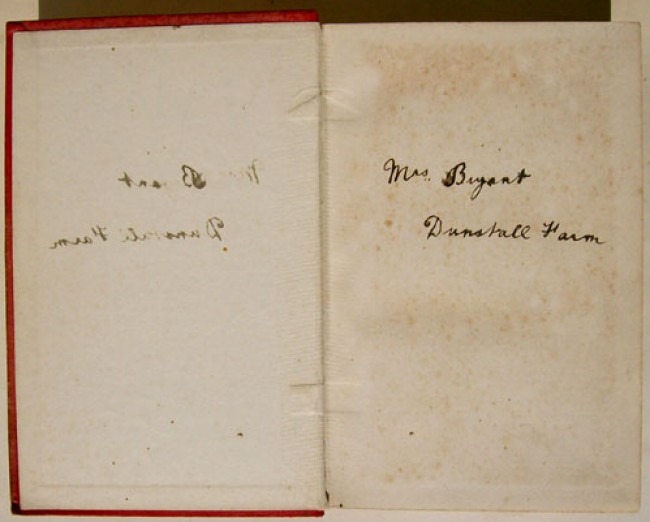 Mrs. Bryant
Dunstall Farm